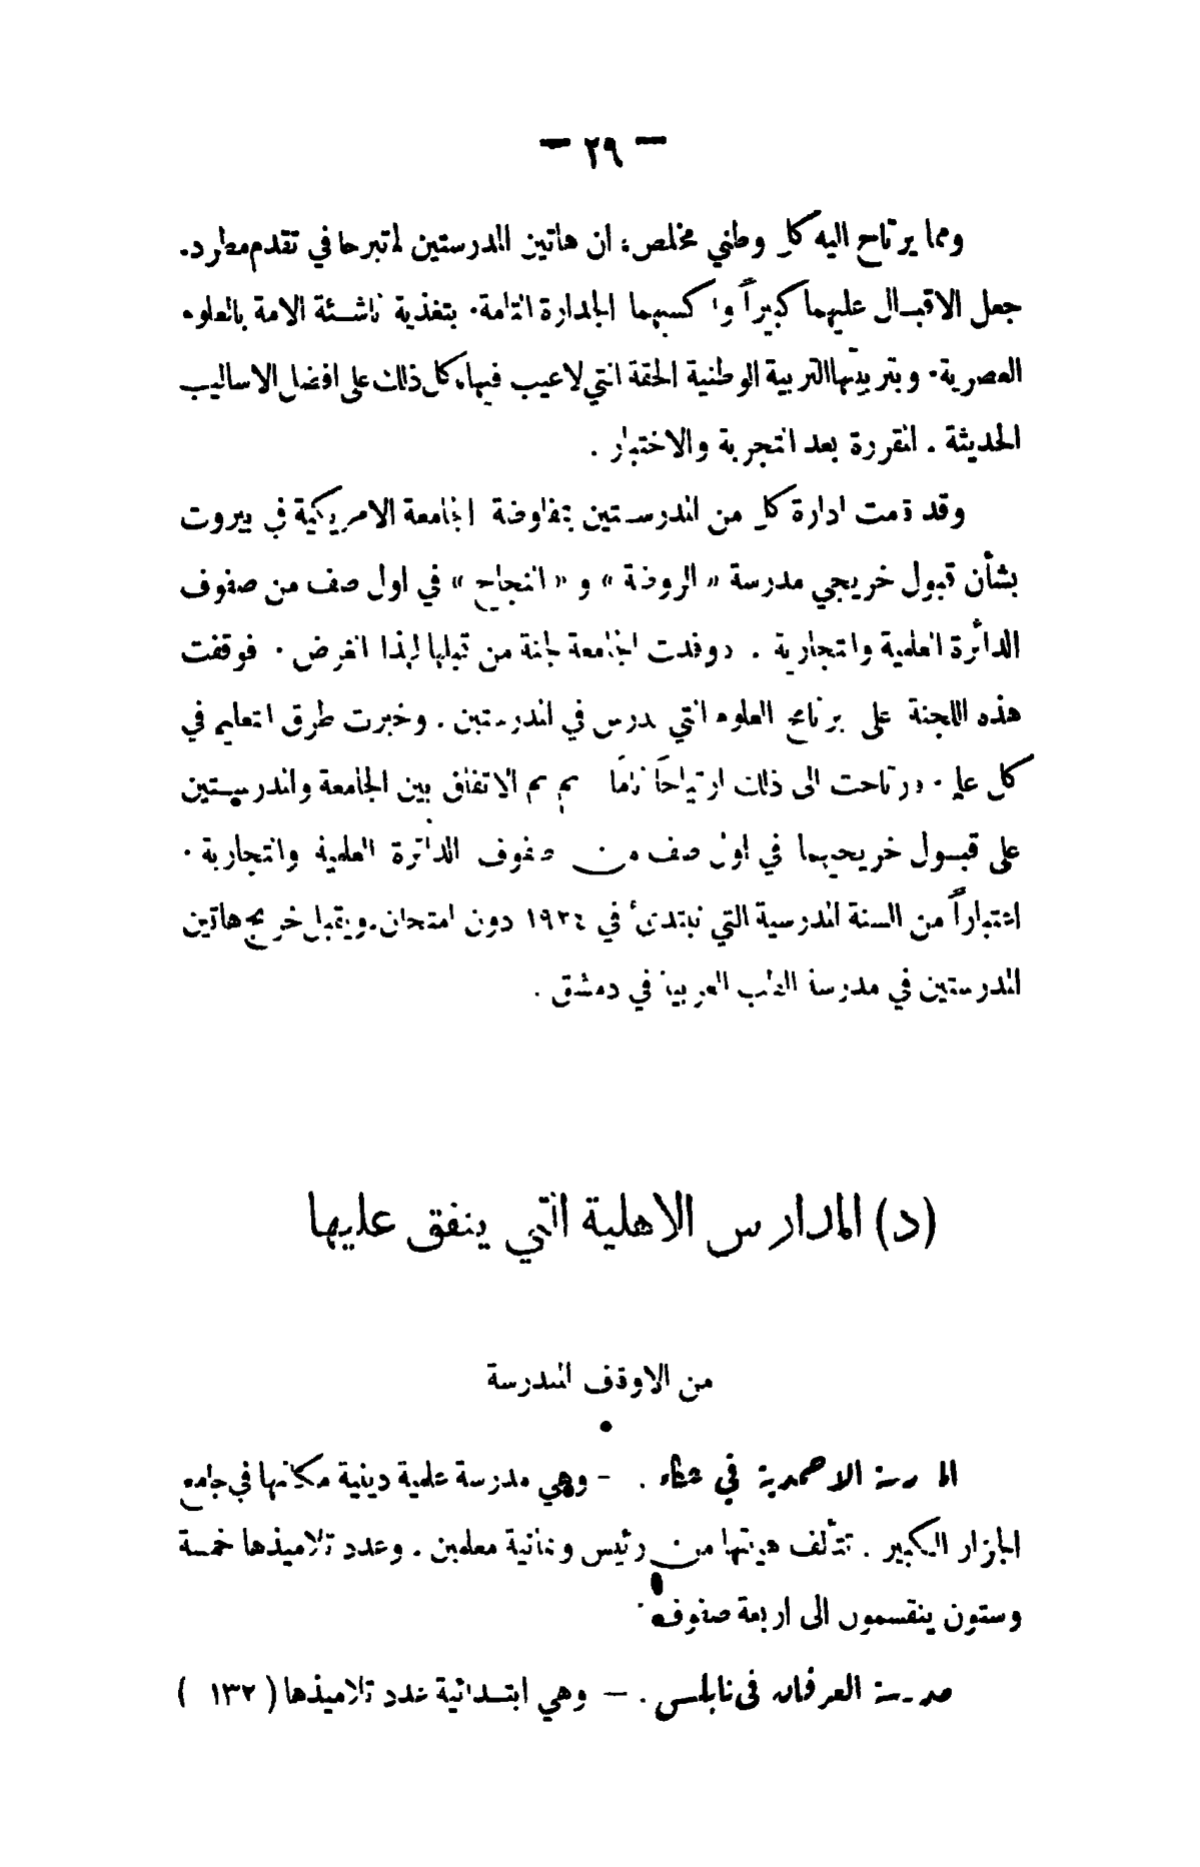 — ٢٩ —
ومما يرتاح اليه كل وطني مخلص، ان هاتين المدرستين لم تبرحا في تقدم مطرد.
جعل الاقبال عليهما كبيراً واكسبهما الجدارة التامة. بتغذية ناشئة الامة بالعلوم
العصرية. وبتربيتها التربية الوطنية الحقة التي لا عيب فيها، كل ذلك على افضل الاساليب
الحديثة. المقررة بعد التجربة والاختبار.
وقد قامت ادارة كل من المدرستين بمفاوضة الجامعة الامريكية في بيروت
بشأن قبول خريجي مدرسة «الروضة» و «النجاح» في اول صف من صفوف
الدائرة العلمية والتجارية. فاوفدت الجامعة لجنة من قبلها لهذا الغرض. فوقفت
هذه اللجنة على برنامج العلوم التي تدرس في المدرستين. وخبرت طرق التعليم في
كل علم. وارتاحت الى ذلك ارتياحاً تاماً ثم تم الاتفاق بين الجامعة والمدرستين
على قبول خريجيهما في اول صف من صفوف الدائرة العلمية والتجارية.
اعتباراً من السنة المدرسية التي تبتدئ في ١٩٢٤ دون امتحان. ويقبل خريج هاتين
المدرستين في مدرسة الطب العربية في دمشق.
(د) المدارس الاهلية التي ينفق عليها
من الاوقاف المندرسة
المدرسة الاحمدية في عكاء. — وهي مدرسة علمية دينية مكانها في جامع
الجزار الكبير. تتألف هيئتها من رئيس وثمانية معلمين. وعدد تلاميذها خمسة
وستون ينقسمون الى اربعة صفوف.
مدرسة العرفان في نابلس. — وهي ابتدائية عدد تلاميذها (١٣٢)